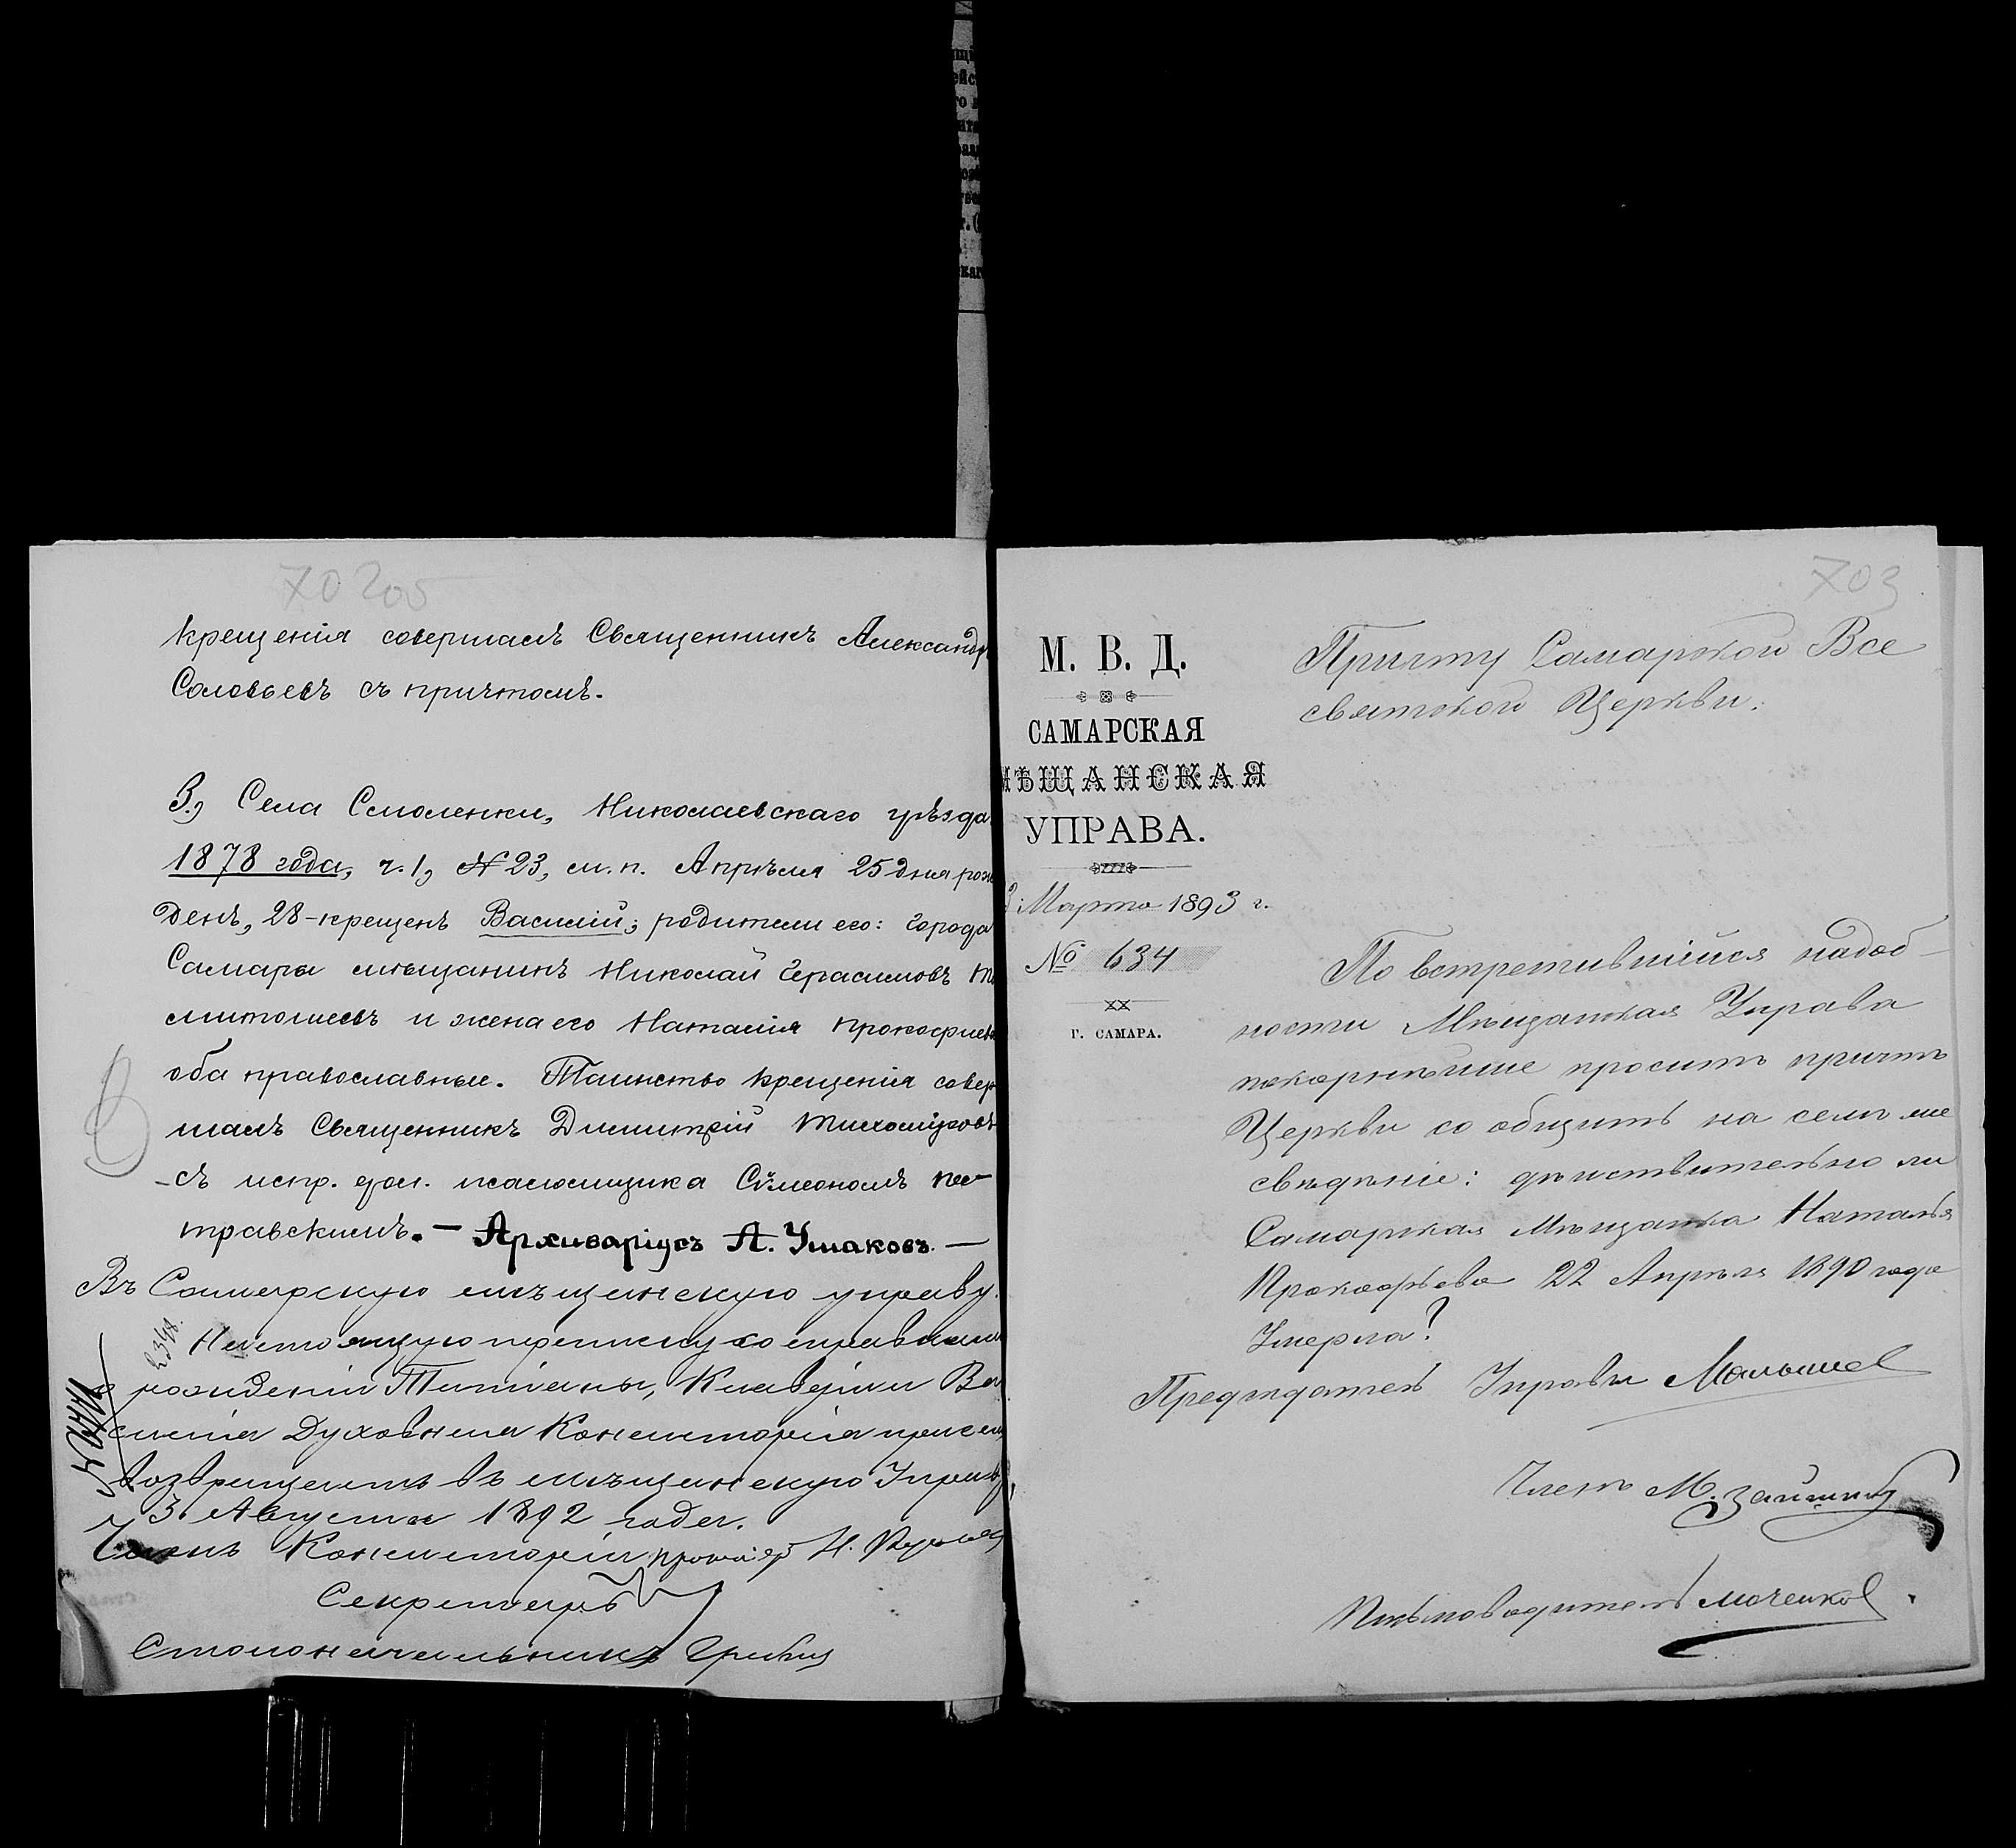 70 205
Крещенія совершалъ Священникъ Александръ
Соловьевъ съ причтомъ.
3., Села Смоленки, Николаевскаго уѣзда
1878 года, ч. 1, № 23, м. п. Апрѣля 25 дня рож
денъ, 28-крещенъ Василій; родители его: города
Самары мѣщанинъ Николай Герасимовъ
и жена его Наталія Прокофиев
оба православные. Таинство Крещенія совер
шалъ Священникъ Димитрій Тихоміровъ
съ испр. дол. псаломщика Сѵмеономъ Пе-
травскимъ. — Архиваріусъ А. Ушаковъ. —
Въ Самарскую мѣщанскую управу.
Настоящую переписку со справками
о рожденіи Татіаны, Клавдіи и Ва
силія Духовная Консисторія
возвращаетъ въ мѣщанскую Управу,
3 Августа 1892 года.
Членъ Консисторіи Н.
Секретарь
Столоначальникъ
703
М. В. Д.
САМАРСКАЯ
МѢЩАНСКАЯ
УПРАВА.
Марта 1893 г.
№ 634
Г. САМАРА.
Причту Самарской Все
святской Церкви.
По встретившійся надоб-
ности Мѣщанская Управа
покорнѣйше проситъ причтъ
Церкви сообщить на семъ же
свѣдѣніе: дѣйствительно ли
Самарская Мѣщанка Наталья
Прокофьева 22 Апрѣля 1890 года
Умерла?
Предсѣдатель Управы Малышев
Членъ М.
Письмоводитель